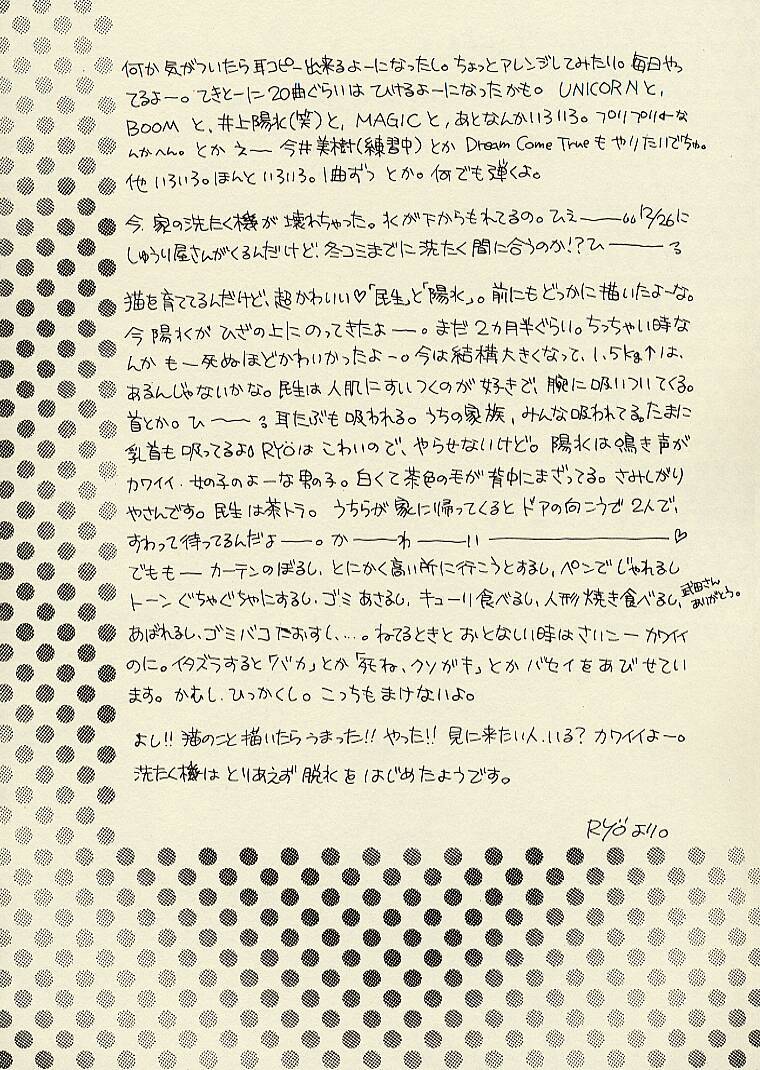 何か気がついたら耳コピー出来るよーになったし。ちょっとアレンジしてみたり。毎日やっ
てるよー。てきとーに20曲ぐらいはひけるよーになったかも。UNICORNと,
BOOMと,井上陽水(笑)と,MAGICと,あとなんかいろいろ。プリプリもーな
んかへん。とかえー今井美樹(練習中)とかDream Come Trueもやりたいでちゅ。
他いろいろ。ほんといろいろ。1曲ずつとか。何でも弾くよ。
今家の洗たく機が壊れちゃった。水が下からもれてるの。ひえ――…12/26に
しゅうり屋さんがくるんだけど、冬コミまでに洗たく間に合うのか!?ひ―――る
猫を育ててるんだけど、超かわいい♡「民生」と「陽水」。前にもどっかに描いたよーな。
今陽水がひざの上にのってきたよー。まだ2ヵ月半ぐらい。ちっちゃい時な
んかもー死ぬほどかわいかったよー。今は結構大きくなって、1.5kg↑は、
あるんじゃないかな。民生は人肌にすいつくのが好きで、腕に吸いついてくる。
首とか。ひ――る耳たぶも吸われる。うちの家族,みんな吸われてる。たまに
乳首も吸ってるよ。RYÖはこわいので、やらせないけど。陽水は鳴き声が
カワイイ.女の子のよーな男の子。白くて茶色の毛が背中にまざってる。さみしがり
やさんです。民生は茶トラ。うちらが家に帰ってくるとドアの向こうで2人で、
すわって待ってるんだよ――。か――わ――いい――――――♡
でもも―カーテンのぼるし、とにかく高い所に行こうとするし,ペンでじゃれるし
トーンぐちゃぐちゃにするし.ゴミあさるし,キューリ食べるし,人形焼き食べるし,武田さんありがとう。
あばれるし,ゴミバコたおすし,…。ねてるときとおとなしい時はさいこーカワイイ
のに。イタズラすると「バカ」とか「死ね、クソガキ」とかバセイをあびせてい
ます。かむし.ひっかくし。こっちもまけないよ。
よし!!猫のこと描いたらうまった!!やった!!見に来たい人.いる?カワイイよー。
洗たく機はとりあえず脱水をはじめたようです。
RYÖより。